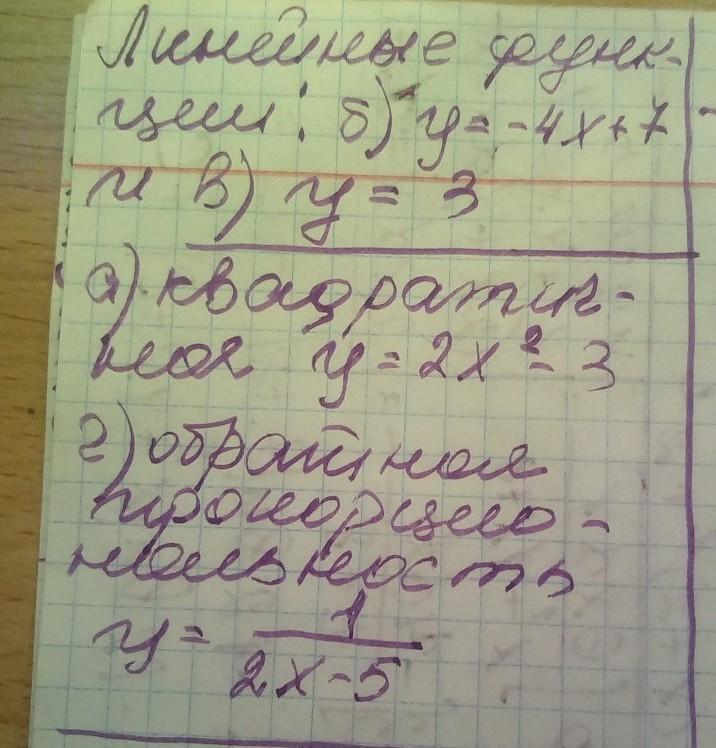 Линейные функ-
ции: б) y = -4x+7
и в) y = 3
а) квадратич-
ная y = 2x² - 3
г) обратная
пропорцио-
нальность
y = 1/(2x-5)